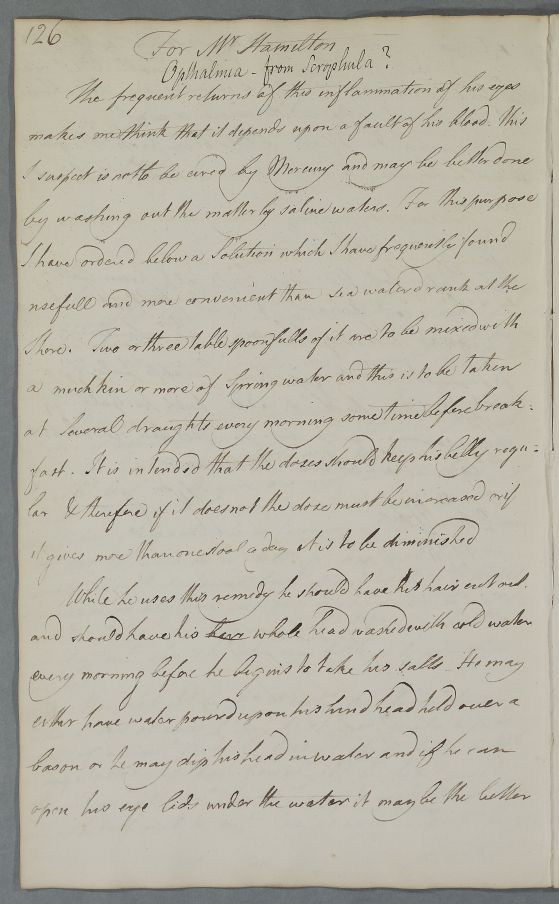 126
For Mr Hamilton
Opthalmia - from Scrophula?
The frequent returns of this inflammation of his eyes
makes me think that it depends upon a fault of his blood. This
I suspect is not to be cured by Mercury and may be better done
by washing out the matter by saline waters. For this purpose
I have ordered below a Solution which I have frequently found
usefull and more convenient than sea water drank at the
Shore. Two or three table spoonfulls of it are to be mixed with
a muchkin or more of Spring water and this is to be taken
at several draughts every morning some time before break-
fast. It is intended that the doses should keep his belly regu-
lar & therefore if it does not the dose must be increased or if
it gives more than one stool a day it is to be diminished
While he uses this remedy he should have his hair cut out
and should have his whole head washed with cold water
every morning before he begins to take his salts. He may
either have water pourd upon his hind head held over a
bason or he may dip his head in water and if he can
open his eye lids under the water it may be the better